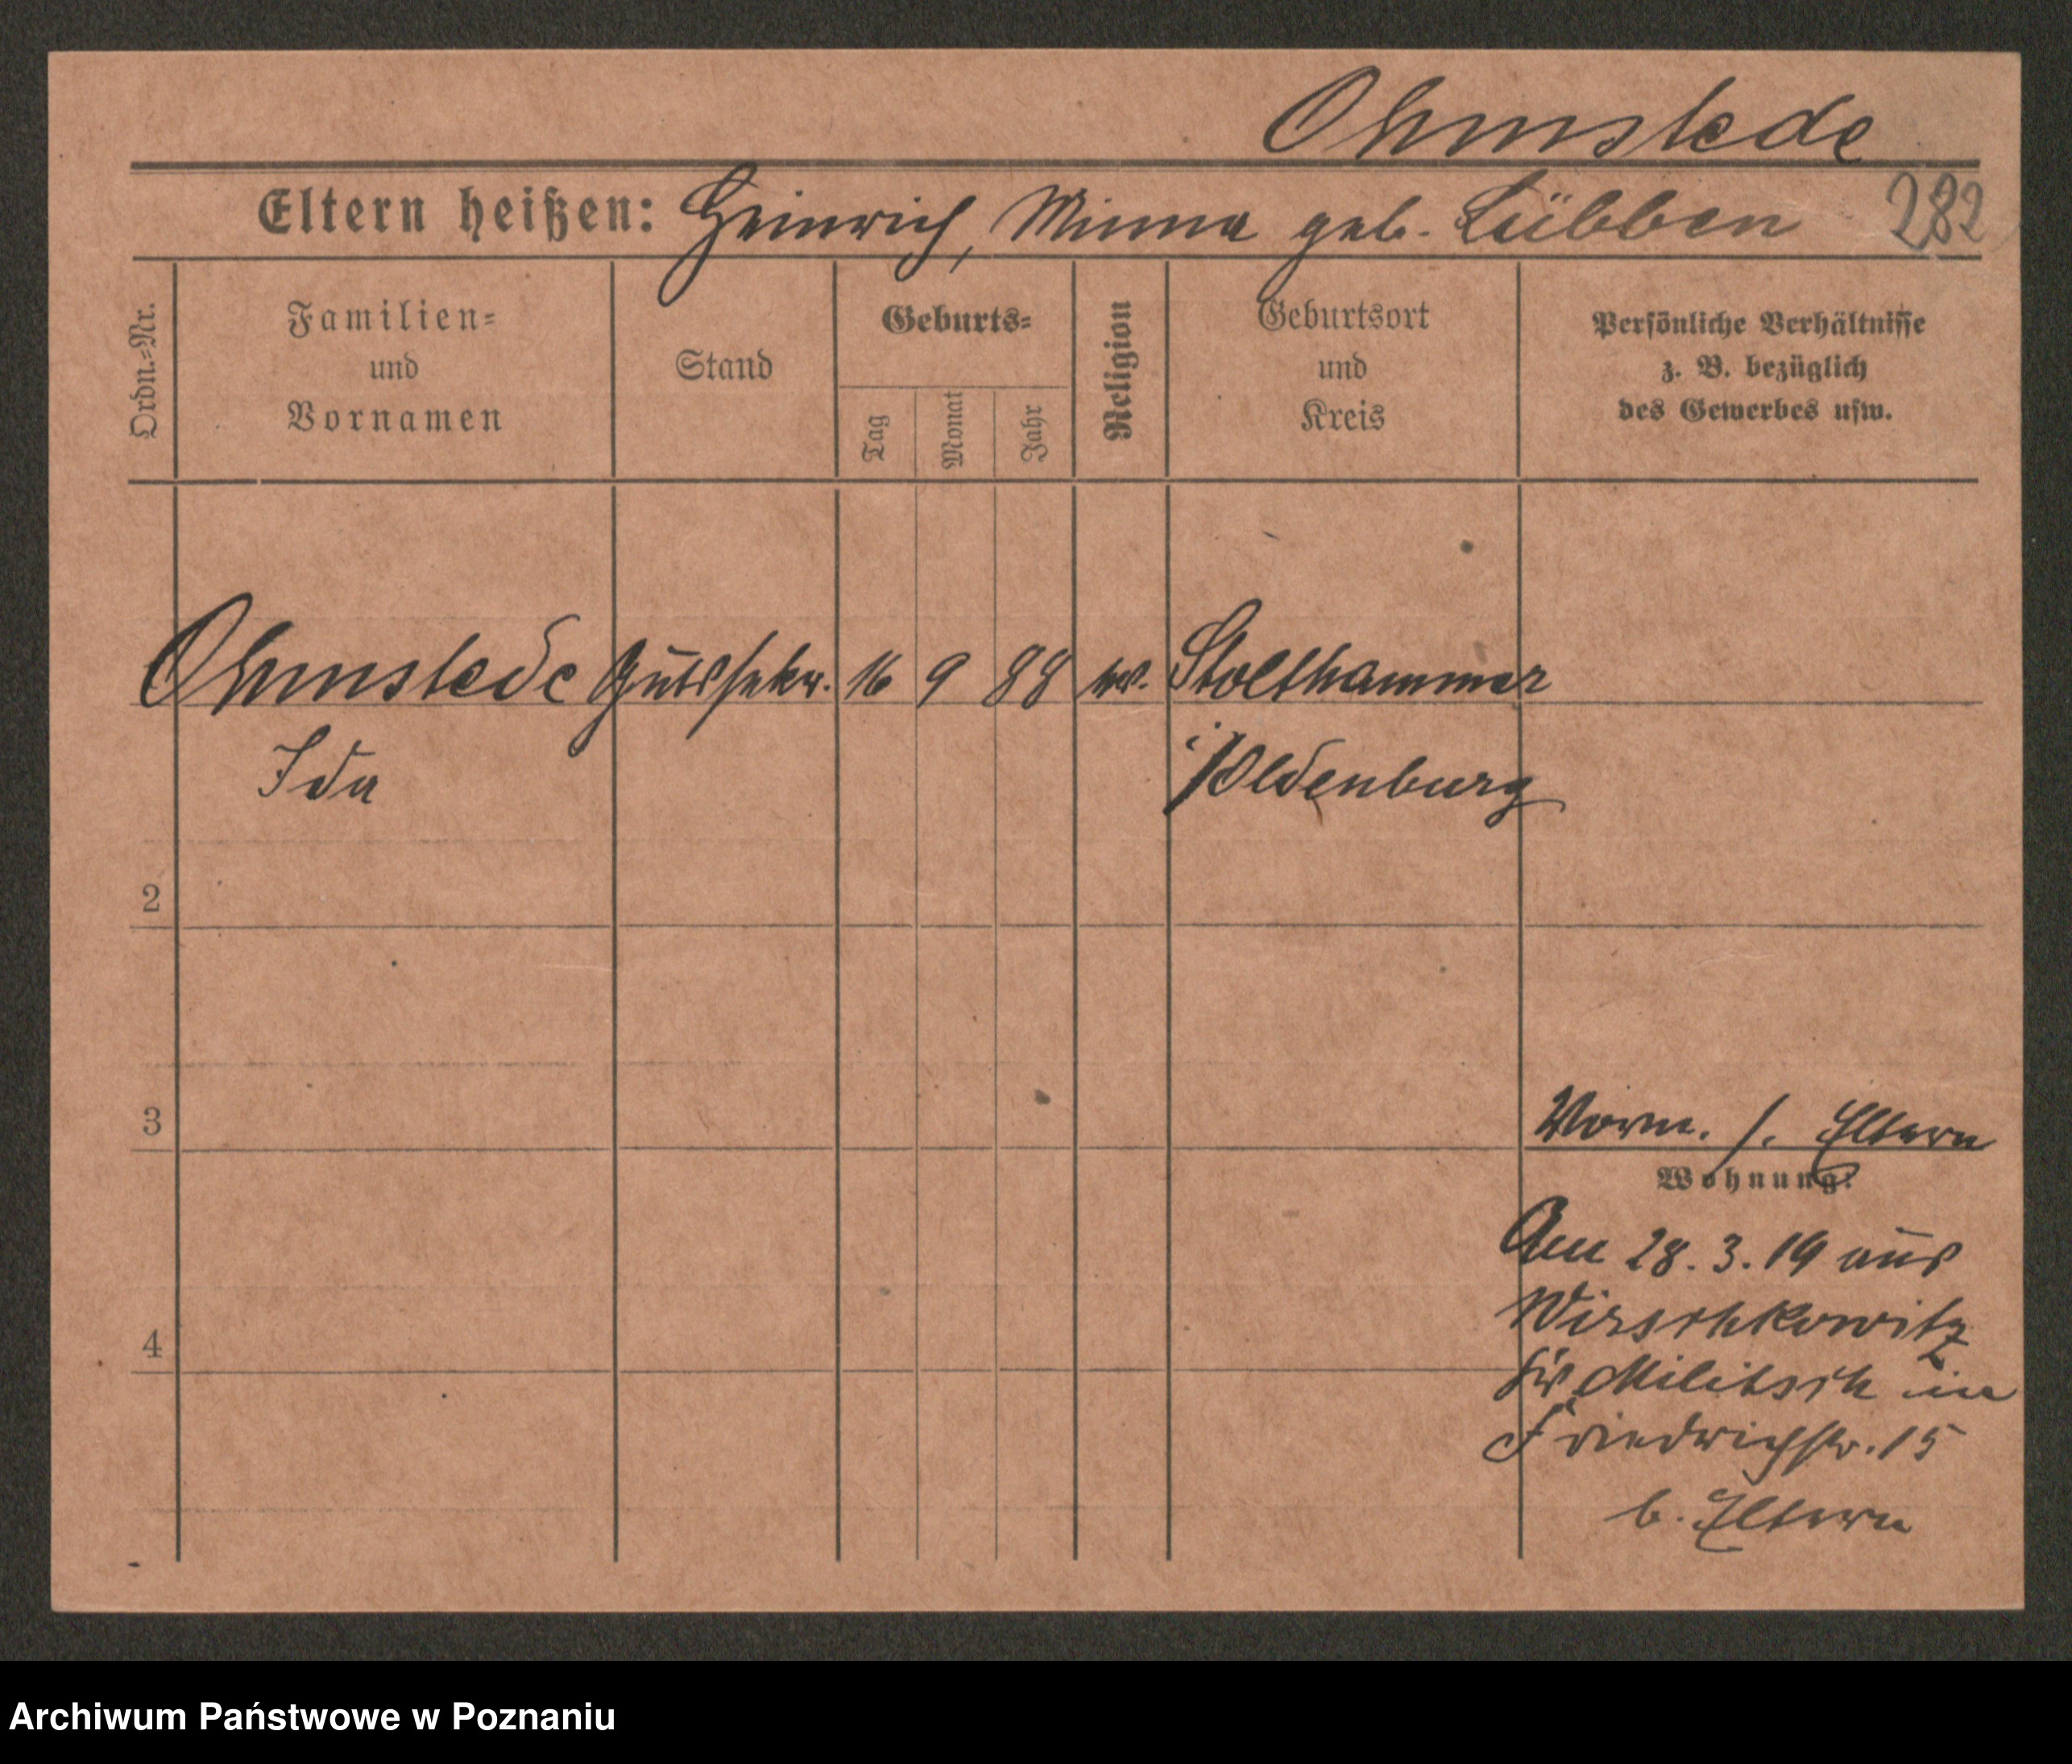 Ohmstede
Eltern heißen: Heinrich, Minna geb. Lübben 282
Ordn.=Nr.
Familien=
und
Vornamen
Stand
Geburts=
Tag
Monat
Jahr
Religion
Geburtsort
und
Kreis
Persönliche Verhältnisse
z. B. bezüglich
des Gewerbes usw.
Ohmstede Gutssekr. 16 9 88 ev. Stollhammer
Ida i/Oldenburg
2
3
Vorm. s. Eltern
Wohnung:
Am 28.3.19 aus
Wirschkowitz
Krs Militsch in
Friedrichstr. 15
b. Eltern
4
Archiwum Państwowe w Poznaniu